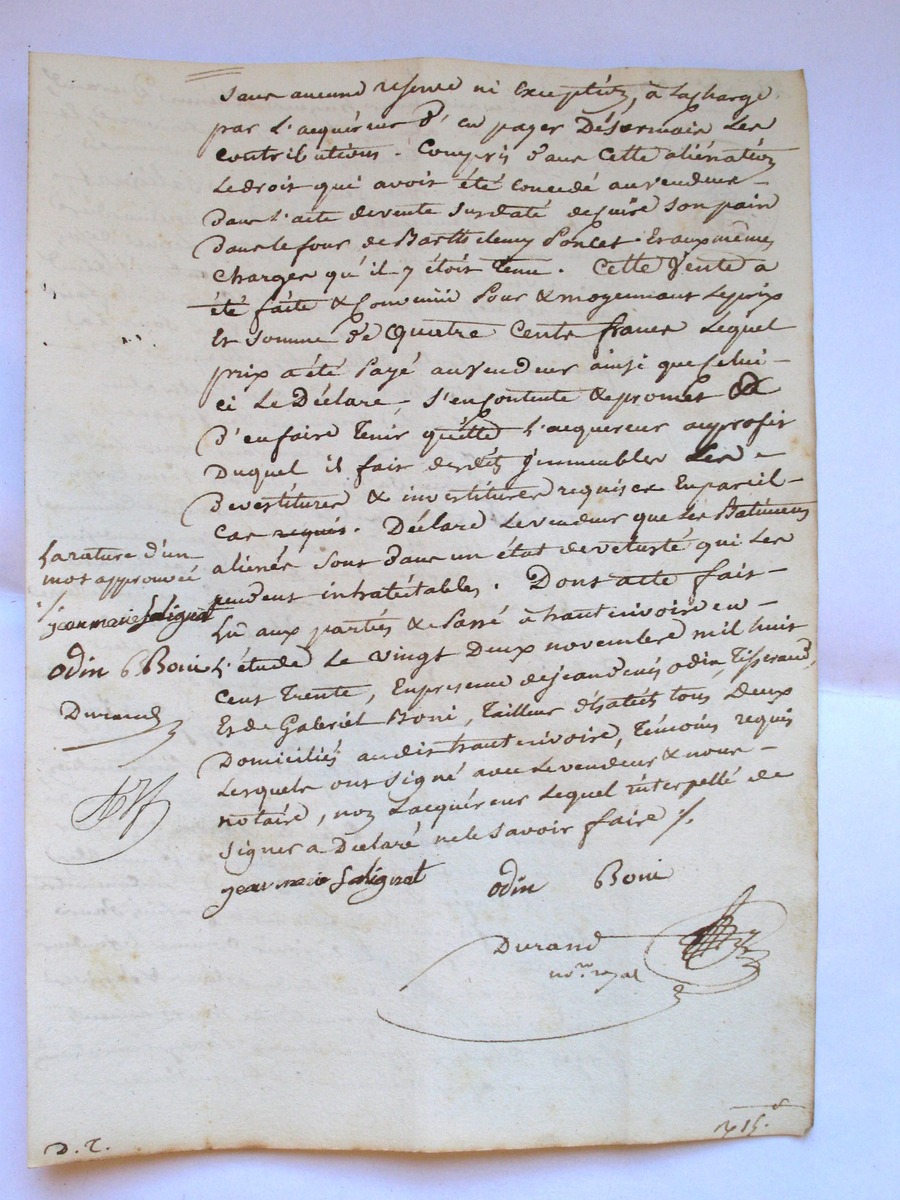 sans aucune reserve ni Exception, à la charge
par l'acquéreur d'en payer Désormais Les
contributions. Compris dans Cette aliénation
Le droit qui avoit été Concedé au vendeur
dans l'acte de vente susdaté de cuire son pain
dans le four de Barthelemy Poncet. Et aux mêmes
Charges qu'il y étoit tenu. Cette Vente a
été faite & Convenüe Pour & moyennant Le prix
Et Somme de Quatre Cents francs Lequel
prix a été Payé au vendeur ainsi que Celui-
ci Le Déclare, S'en Contente & promet
D'en faire Tenir quitte L'acquereur au profit
Duquel il fait desdits Immeubles Les
Devestitures & investitures requises En pareil
Cas requis. Déclare Le vendeur que Les Batimens
aliénés sont dans un état de vetusté qui Les
rendent inhabitables. Dont acte fait
Lu aux parties & Passé à hauterivoire en
L'étude Le vingt Deux novembre mil huit
Cent Trente, En presence de jean odin, Tisserand,
Et de Gabriel Boni, Tailleur d'habits tous Deux
Domiciliés audit hauterivoire, Témoins requis
Lesquels ont Signé avec Le vendeur & nous
notaire, non L'acquéreur Lequel interpellé de
Signer a Déclaré ne le Savoir faire /.
jean marie Salignat odin Boni
Durand
no.re royal
La rature d'un
mot approuvée
jean marie Salignat
odin Boni
Durand
D. T.